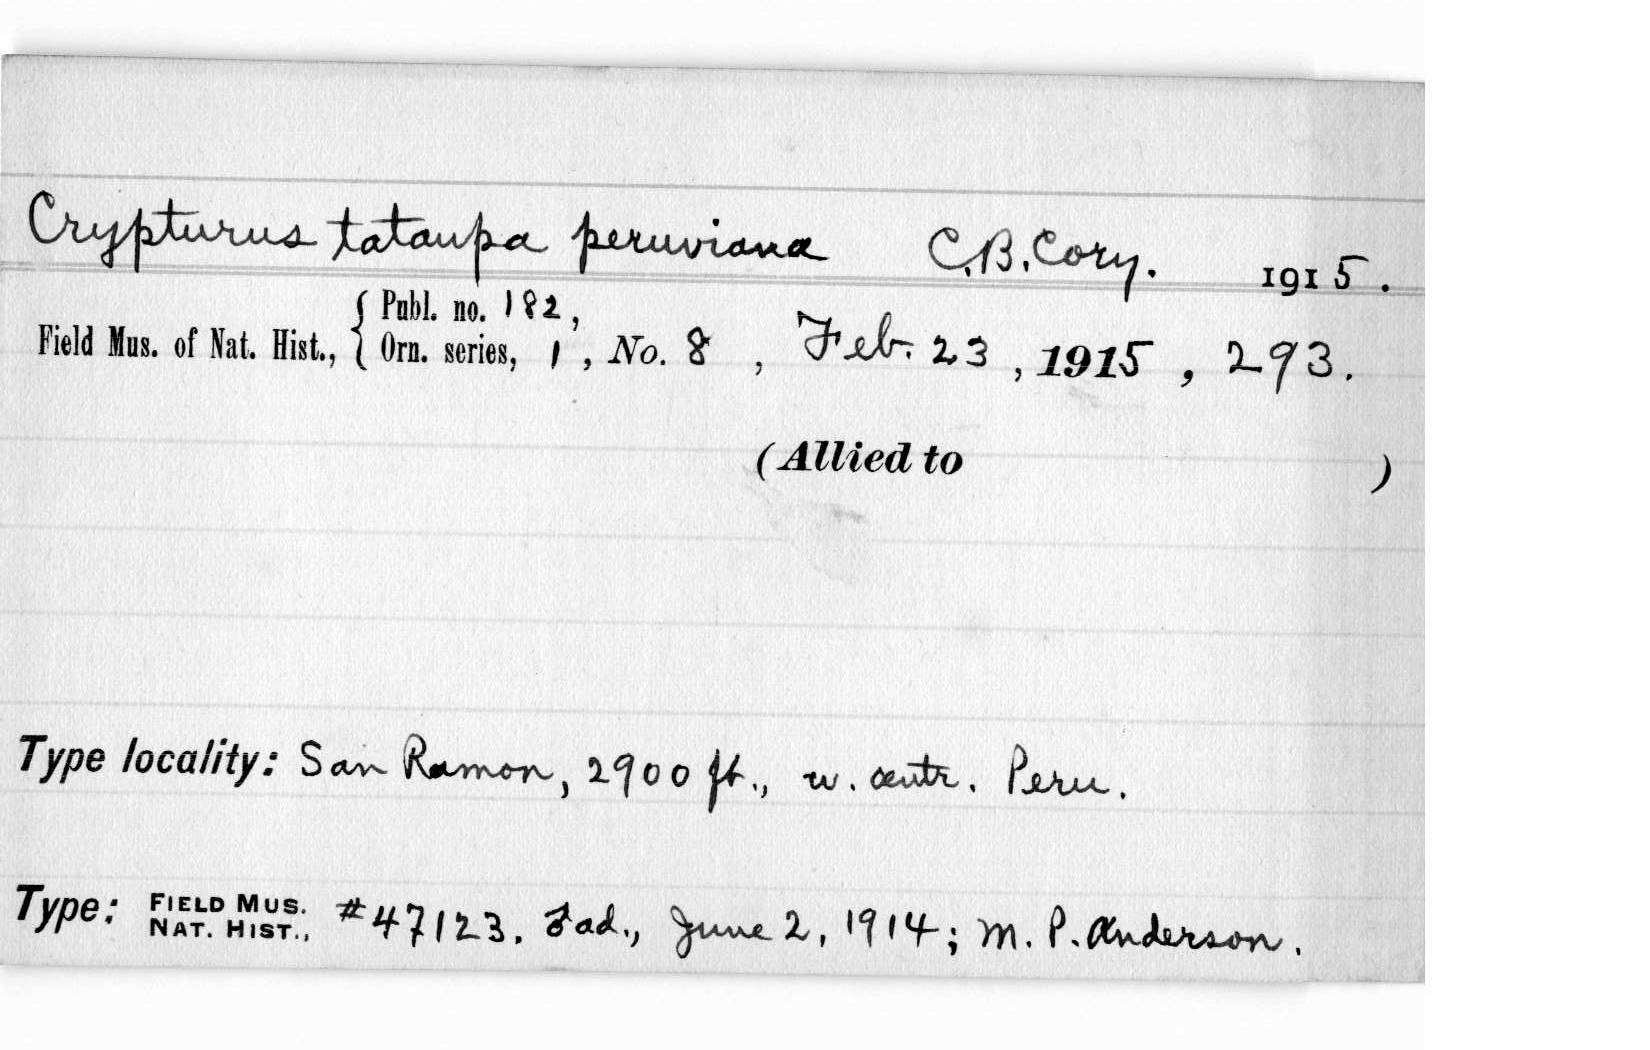 Crypturus tataupa peruviana C.B. Cory. 1915.
Publ. no. 182,
Field Mus. of Nat. Hist., { Orn. series, 1, No. 8, Feb. 23, 1915, 293.
(Allied to )
Type locality: San Ramon, 2900 ft., w. centr. Peru.
Type: FIELD MUS. NAT. HIST., #47123. ♂ ad., June 2, 1914; M. P. Anderson.